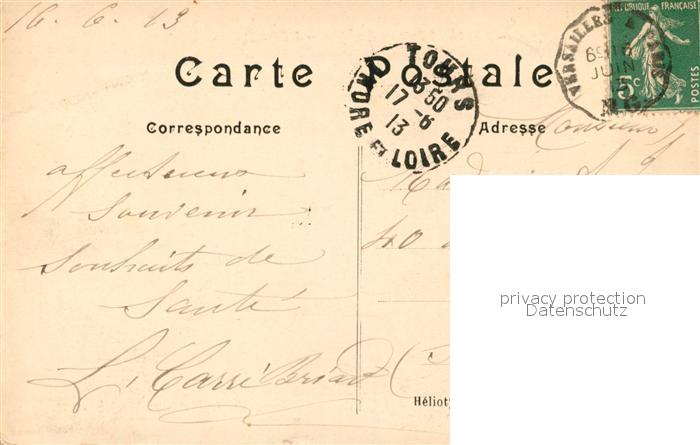 16. 6. 13
RÉPUBLIQUE FRANÇAISE
5c
POSTES
VERSAILLES
JUIN
TOURS
17 -6
13
INDRE ET LOIRE
Carte Postale
Correspondance
Adresse
Monsieur
affectueux
Souvenir
souhaits de
Santé
L. Carré Briand
40
Hélioty
privacy protection
Datenschutz